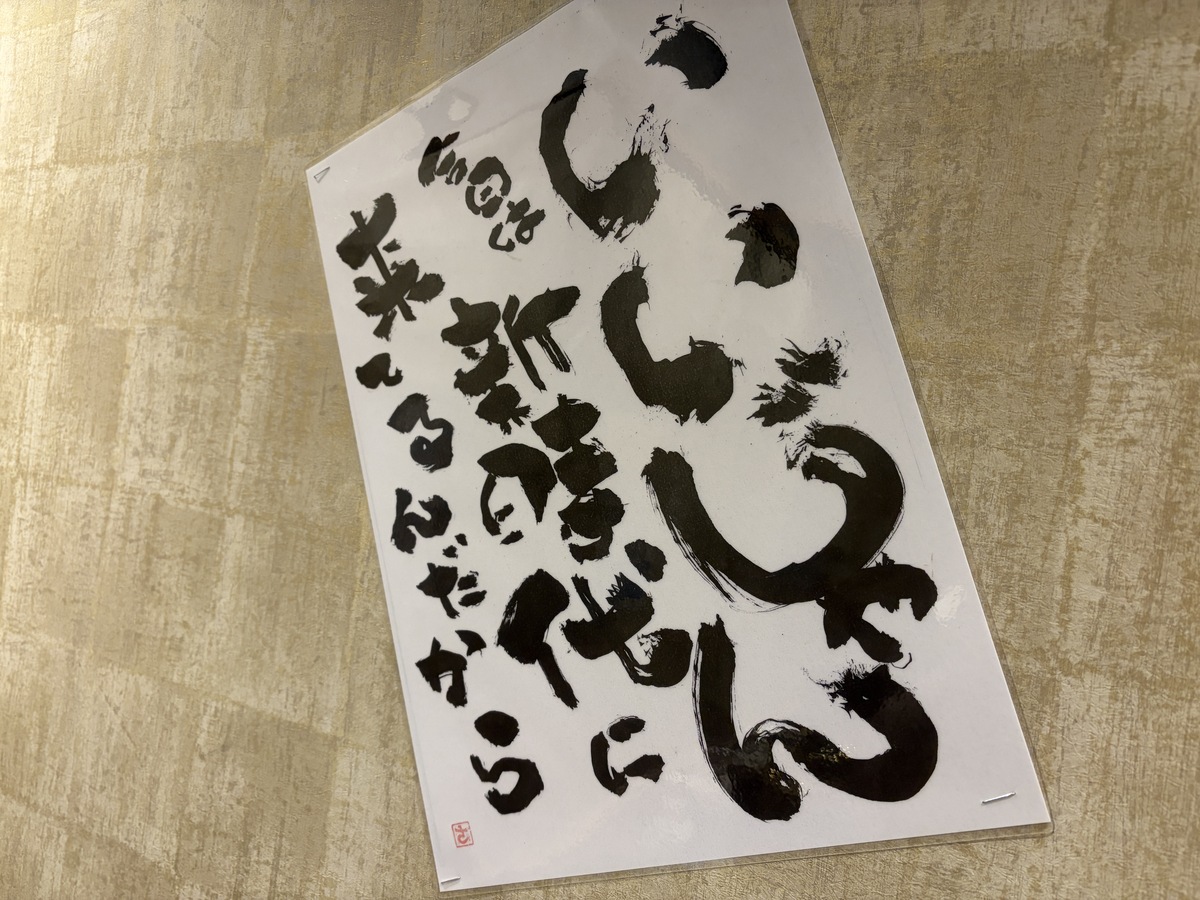 いいじゃん
新時代に
来てるんだから